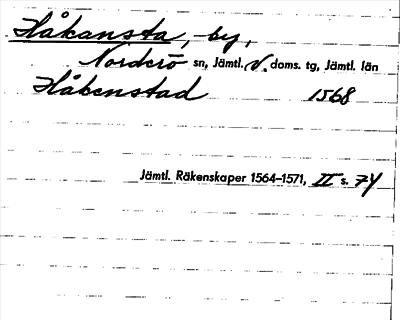 Håkansta, by,
Norderö sn, Jämtl. V. doms. tg, Jämtl. län
Håkenstad 1568
Jämtl. Räkenskaper 1564–1571, II s. 74